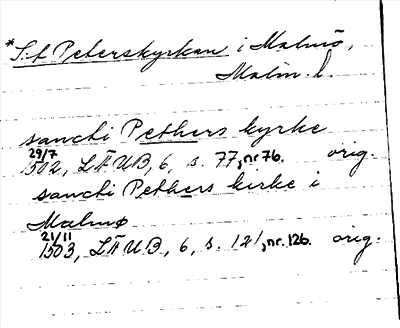 *S:t Peterskyrkan i Malmö,
Malm. l.
sancti Pethers kyrke
29/7
1502, LÄUB, 6, s. 77, nr 76. orig.
sancti Pethers kirke i
Malmø
21/11
1503, LÄUB, 6, s. 121, nr. 126. orig.